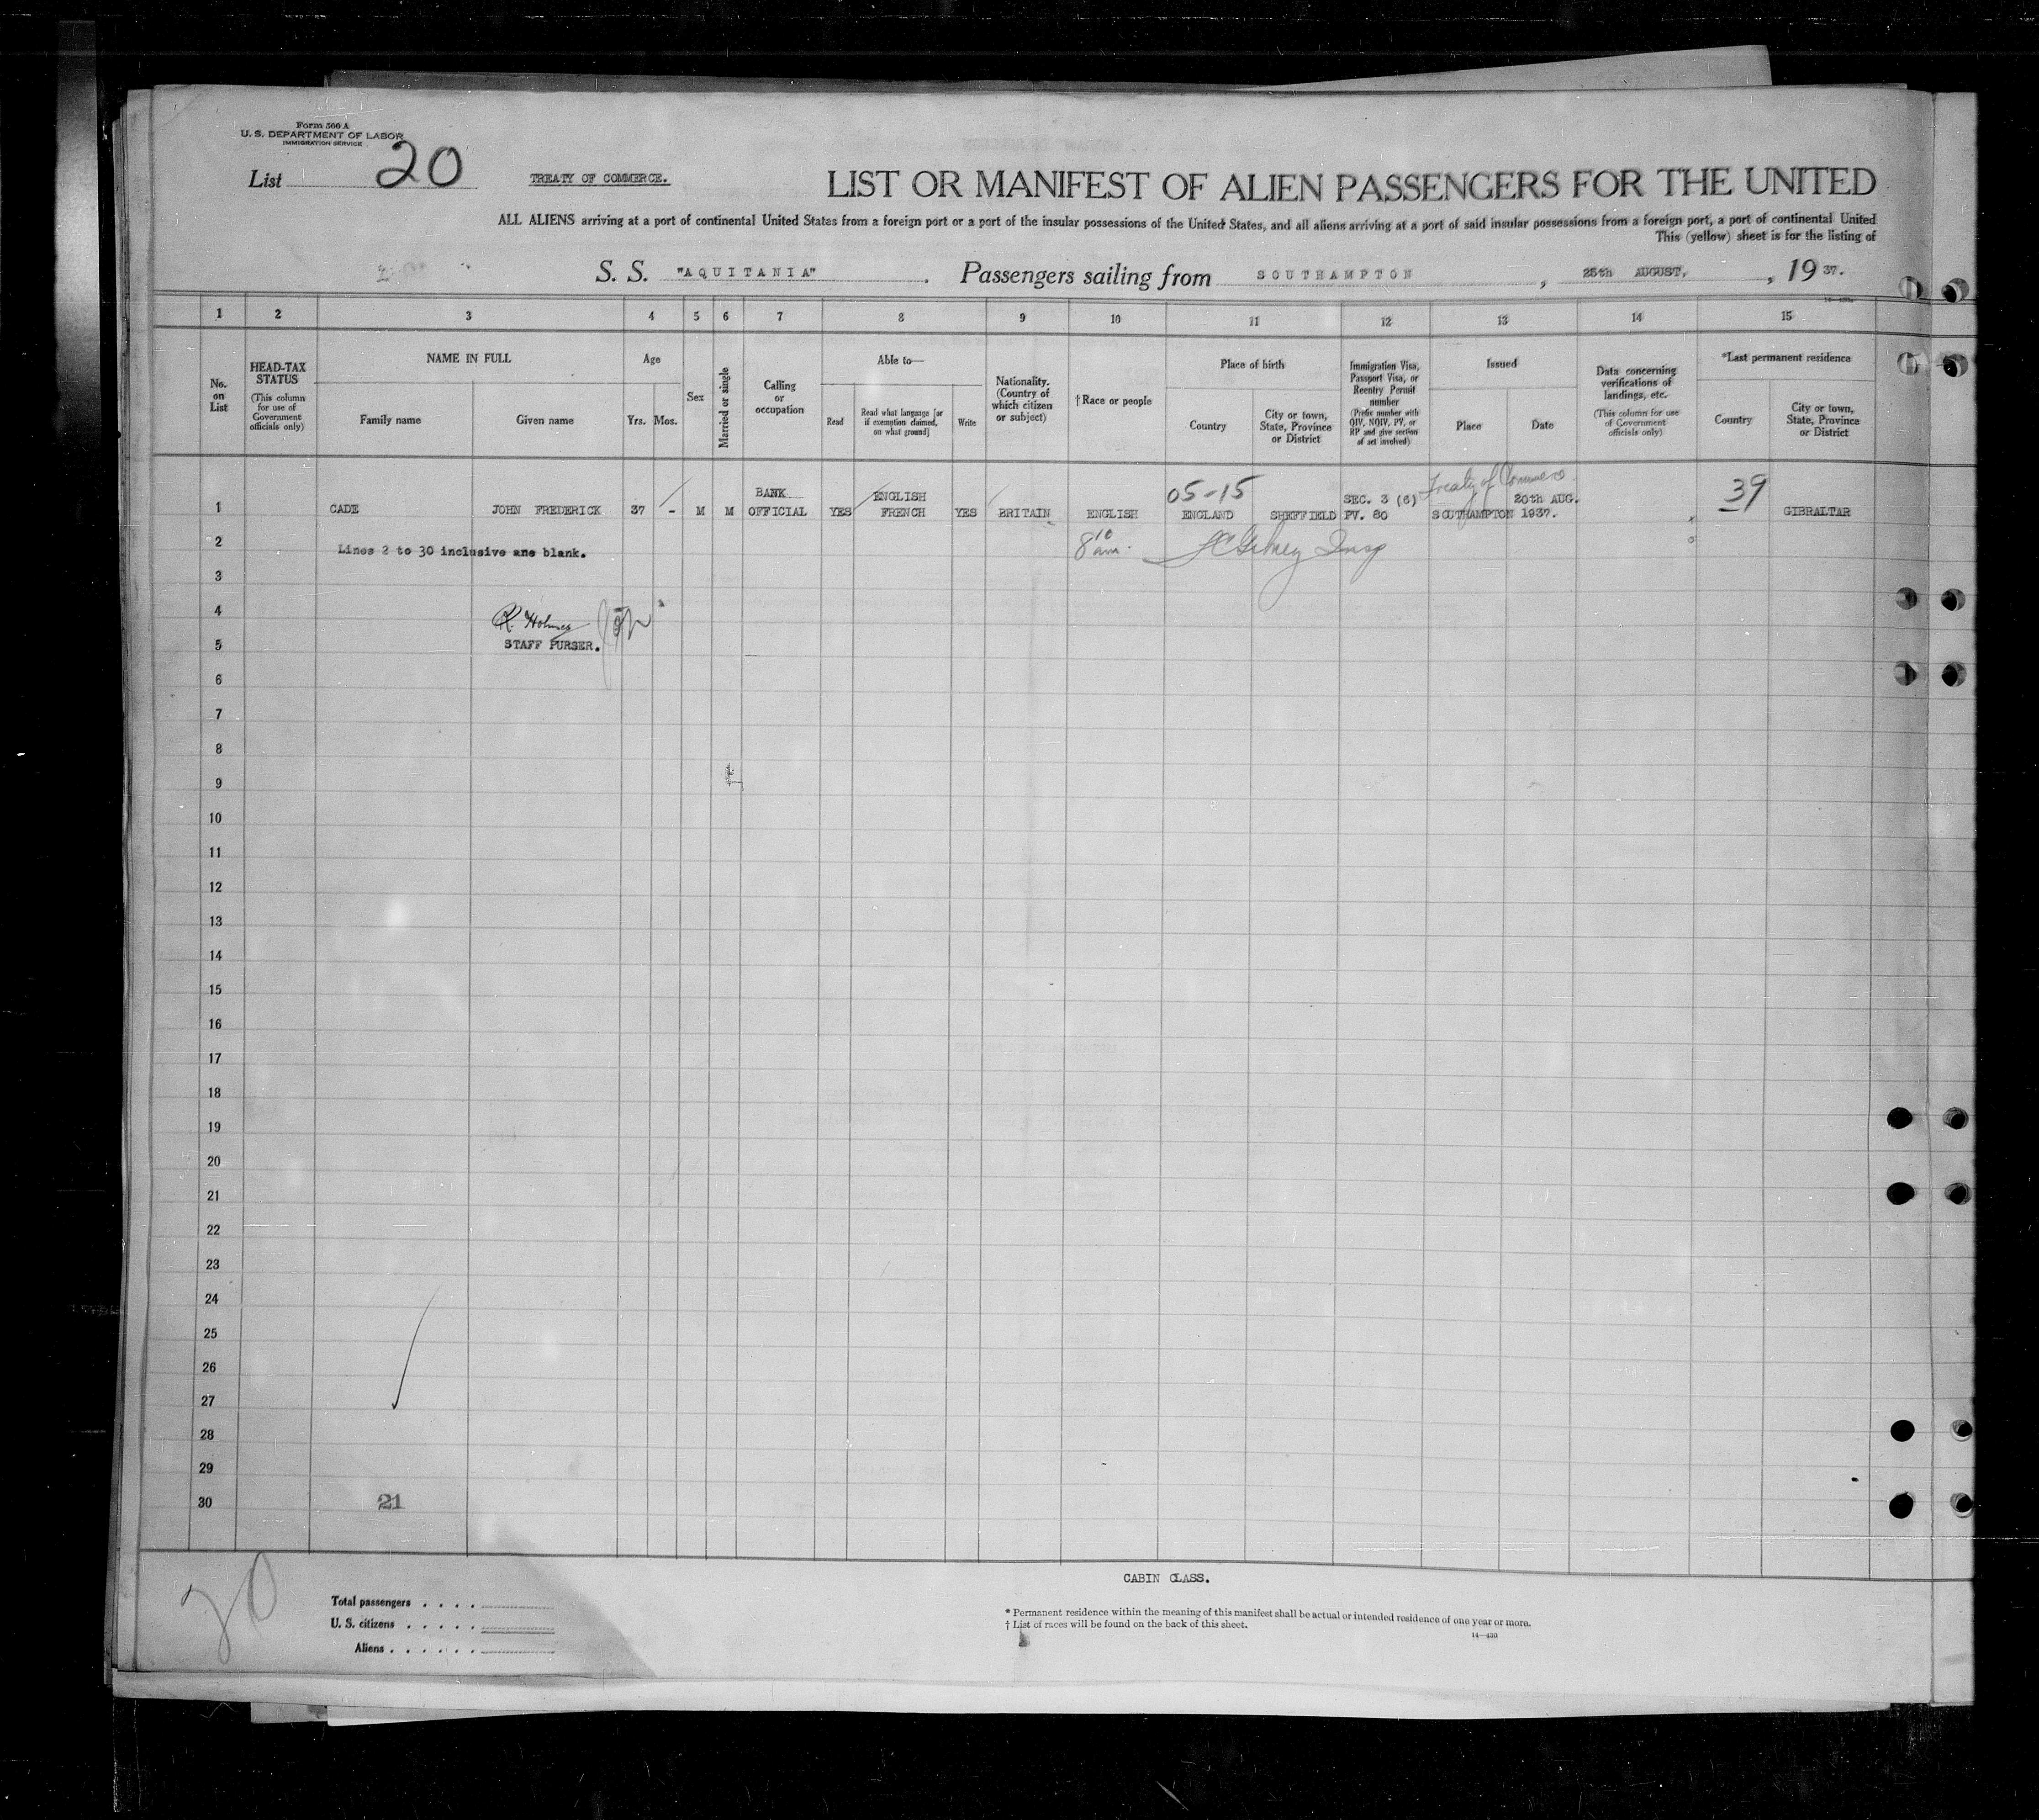 Form 500 A
U. S. DEPARTMENT OF LABOR
IMMIGRATION SERVICE
List 20
TREATY OF COMMERCE.
LIST OR MANIFEST OF ALIEN PASSENGERS FOR THE UNITED
ALL ALIENS arriving at a port of continental United States from a foreign port or a port of the insular possessions of the United States, and all aliens arriving at a port of said insular possessions from a foreign port, a port of continental United
This (yellow) sheet is for the listing of
S. S. "AQUITANIA" . Passengers sailing from SOUTHAMPTON , 25th AUGUST, , 19 37.
1 2 3 4 5 6 7 8 9 10 11 12 13 14 15
No. on List
HEAD-TAX STATUS
(This column for use of Government officials only)
NAME IN FULL
Family name
Given name
Age
Yrs. Mos.
Sex
Married or single
Calling or occupation
Able to—
Read
Read what language [or if exemption claimed, on what ground]
Write
Nationality. (Country of which citizen or subject)
†Race or people
Place of birth
Country
City or town, State, Province or District
Immigration Visa, Passport Visa, or Reentry Permit number
(Prefix number with QIV, NQIV, PV, or RP and give section of act involved)
Issued
Place
Date
Data concerning verifications of landings, etc.
(This column for use of Government officials only)
*Last permanent residence
Country
City or town, State, Province or District
Treaty of Commerce
05-15
39
1 CADE JOHN FREDERICK 37 - M M BANK OFFICIAL YES ENGLISH FRENCH YES BRITAIN ENGLISH ENGLAND SHEFFIELD SEC. 3 (6) PV. 80 SOUTHAMPTON 20th AUG. 1937. GIBRALTAR
2 Lines 2 to 30 inclusive are blank. 8 10 am. Insp
3
4 R. Holmes
5 STAFF PURSER.
6
7
8
9
10
11
12
13
14
15
16
17
18
19
20
21
22
23
24
25
26
27
28
29
30 21
20
CABIN CLASS.
Total passengers
U. S. citizens
Aliens
* Permanent residence within the meaning of this manifest shall be actual or intended residence of one year or more.
† List of races will be found on the back of this sheet.
14—430